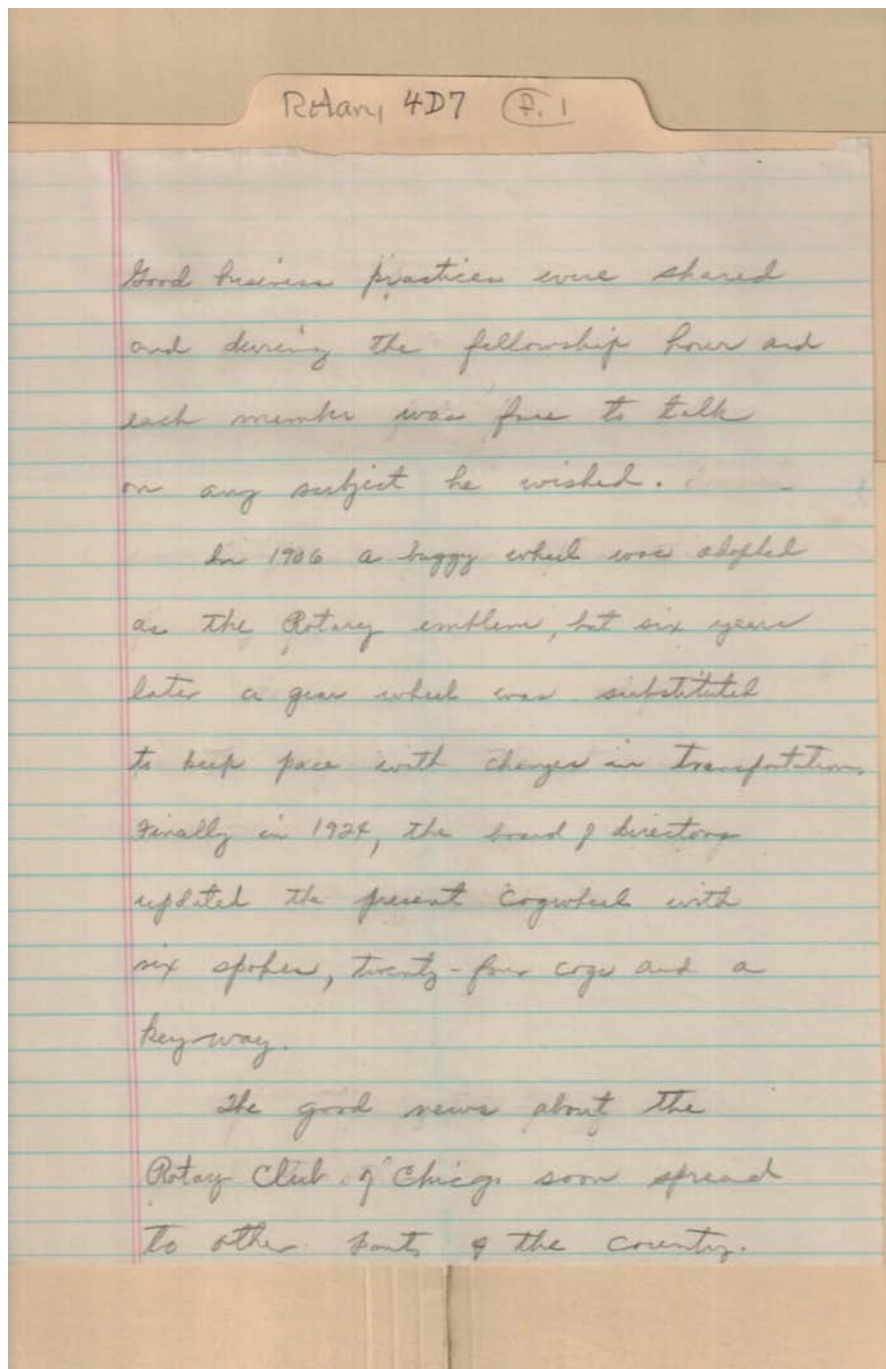 Rotary 4D7 P. 1
Good business practices were shared
and during the fellowship hour and
each member was free to talk
on any subject he wished.
In 1906 a buggy wheel was adopted
as the Rotary emblem, but six years
later a gear wheel was substituted
to keep pace with changes in transportation.
Finally in 1924, the board of directors
updated the present cogwheel with
six spokes, twenty-four cogs and a
key-way.
The good news about the
Rotary Club of Chicago soon spread
to other parts of the country.